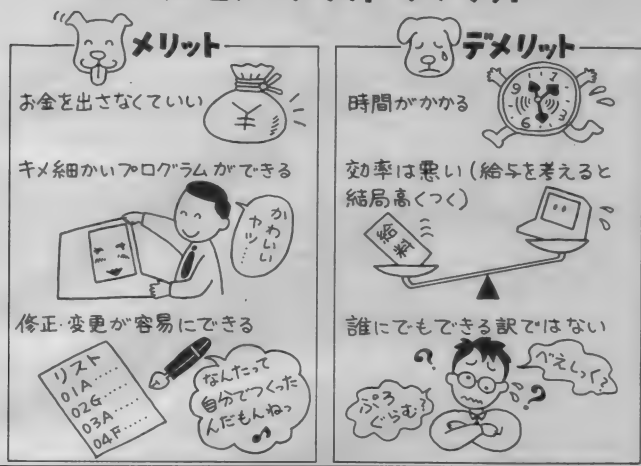 メリット
お金を出さなくていい
¥
キメ細かいプログラムができる
かわいい
ヤツ……
修正・変更が容易にできる
リスト
01A……
02G……
03A……
04F……
なんたって
自分でつくった
んだもんねっ
デメリット
時間がかかる
12
3
6
9
効率は悪い（給与を考えると
結局高くつく）
給料
誰にでもできる訳ではない
?
?
べえしっく?
ぷろ
ぐらむ?